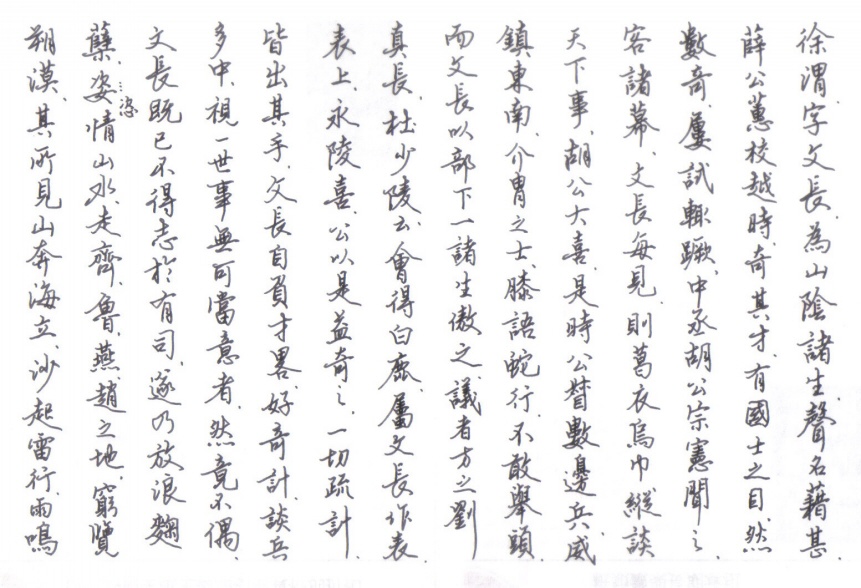 徐渭、字文長、為山陰諸生、聲名藉甚、
薛公蕙校越時、奇其才、有國士之目、然
數奇、屢試輒蹶、中丞胡公宗憲聞之、
客諸幕、文長每見、則葛衣烏巾、縱談
天下事、胡公大喜、是時公督數邊兵、威
鎮東南、介冑之士、膝語蛇行、不敢舉頭、
而文長以部下一諸生傲之、議者方之劉
真長、杜少陵云、會得白鹿、屬文長作表、
表上、永陵喜、公以是益奇之、一切疏計、
皆出其手、文長自負才畧、好奇計、談兵
多中、視一世事無可當意者、然竟不偶、
文長既已不得志於有司、遂乃放浪麯
蘗、姿情山水、走齊、魯、燕趙之地、窮覽
恣
朔漠、其所見山奔海立、沙起雷行、雨鳴